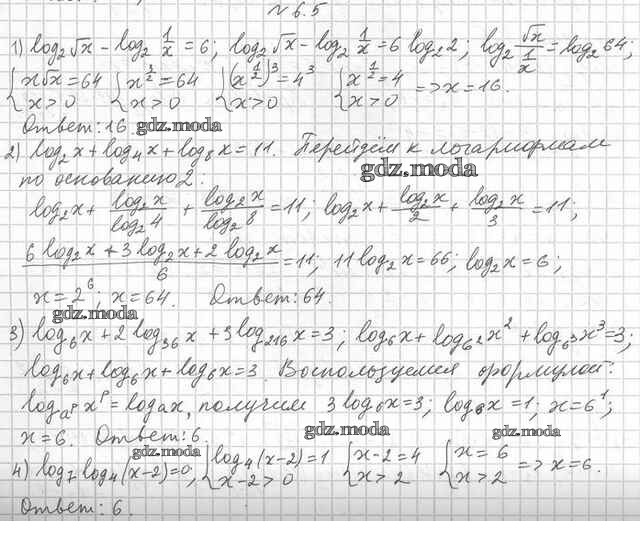 № 6.5
1) log₂√x − log₂ 1/x = 6; log₂√x − log₂ 1/x = 6 log₂2; log₂ √x/(1/x) = log₂64;
{x√x = 64 {x^(3/2) = 64 {(x^(1/2))³ = 4³ {x^(1/2) = 4 => x = 16.
x > 0 x > 0 x > 0 x > 0
Ответ: 16. gdz.moda
2) log₂x + log₄x + log₈x = 11. Перейдём к логарифмам
gdz.moda
по основанию 2:
log₂x + log₂x/log₂4 + log₂x/log₂8 = 11; log₂x + log₂x/2 + log₂x/3 = 11;
(6 log₂x + 3 log₂x + 2 log₂x)/6 = 11; 11 log₂x = 66; log₂x = 6;
x = 2⁶; x = 64. Ответ: 64.
gdz.moda
3) log₆x + 2 log₃₆x + 3 log₂₁₆x = 3; log₆x + log₆²x² + log₆³x³ = 3;
log₆x + log₆x + log₆x = 3. Воспользуемся формулой:
logₐᵖ xᵖ = logₐx, получим 3 log₆x = 3; log₆x = 1; x = 6¹;
gdz.moda
x = 6. Ответ: 6. gdz.moda
gdz.moda
4) log₇ log₄(x−2) = 0, {log₄(x−2) = 1 {x−2 = 4 {x = 6 => x = 6.
x−2 > 0 x > 2 x > 2
gdz.moda
Ответ: 6.